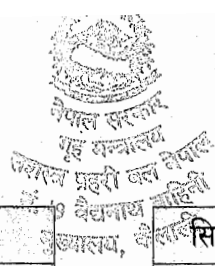 नेपाल सरकार
गृह मन्त्रालय
सशस्त्र प्रहरी बल नेपाल
वैद्यनाथ वाहिनी
सि